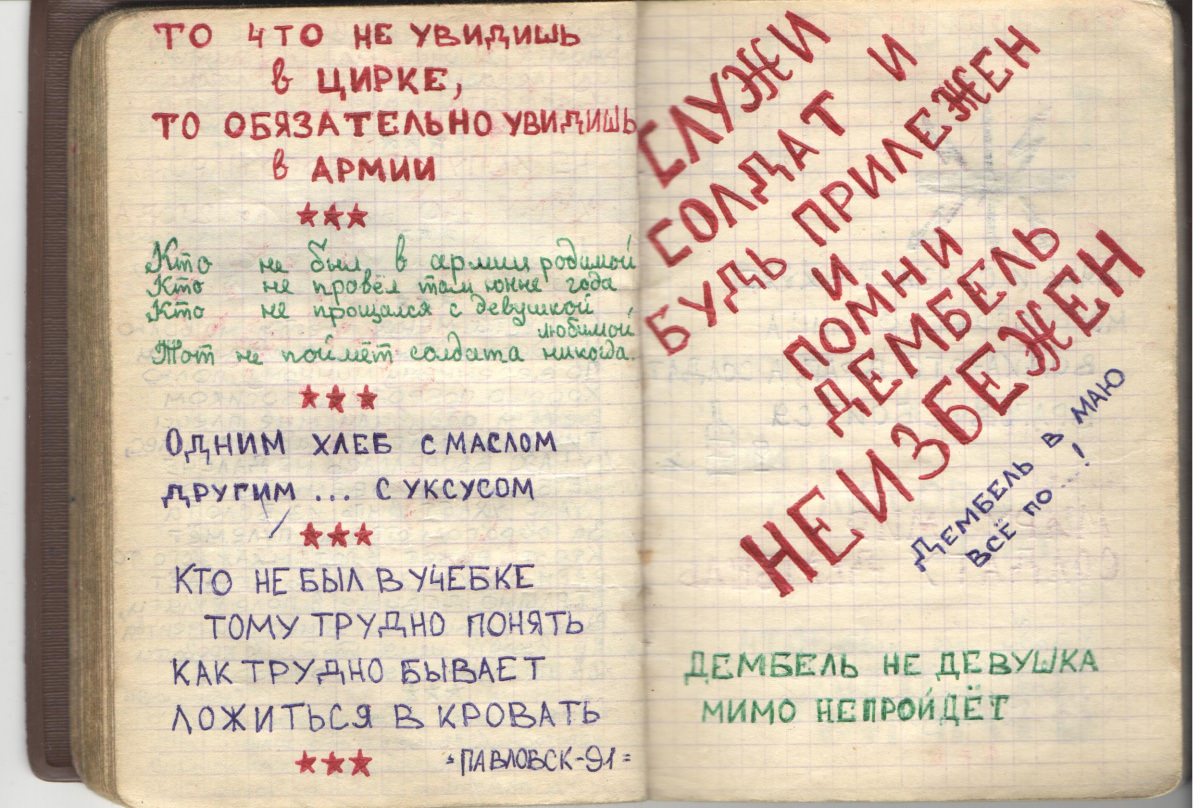 ТО ЧТО НЕ УВИДИШЬ
в ЦИРКЕ,
ТО ОБЯЗАТЕЛЬНО УВИДИШЬ
в АРМИИ
★★★
Кто не был в армии родимой
Кто не провёл там юние года
Кто не прощался с девушкой
любимой
Тот не поймёт солдата никогда.
★★★
ОДНИМ ХЛЕБ С МАСЛОМ
ДРУГИМ ... С УКСУСОМ
★★★
КТО НЕ БЫЛ В УЧЕБКЕ
ТОМУ ТРУДНО ПОНЯТЬ
КАК ТРУДНО БЫВАЕТ
ЛОЖИТЬСЯ В КРОВАТЬ
★★★ =ПАВЛОВСК-91=
СЛУЖИ
СОЛДАТ И
БУДЬ ПРИЛЕЖЕН
И
ПОМНИ
ДЕМБЕЛЬ
НЕИЗБЕЖЕН
ДЕМБЕЛЬ В МАЮ
ВСЁ ПО ...!
ДЕМБЕЛЬ НЕ ДЕВУШКА
МИМО НЕПРОЙДЁТ